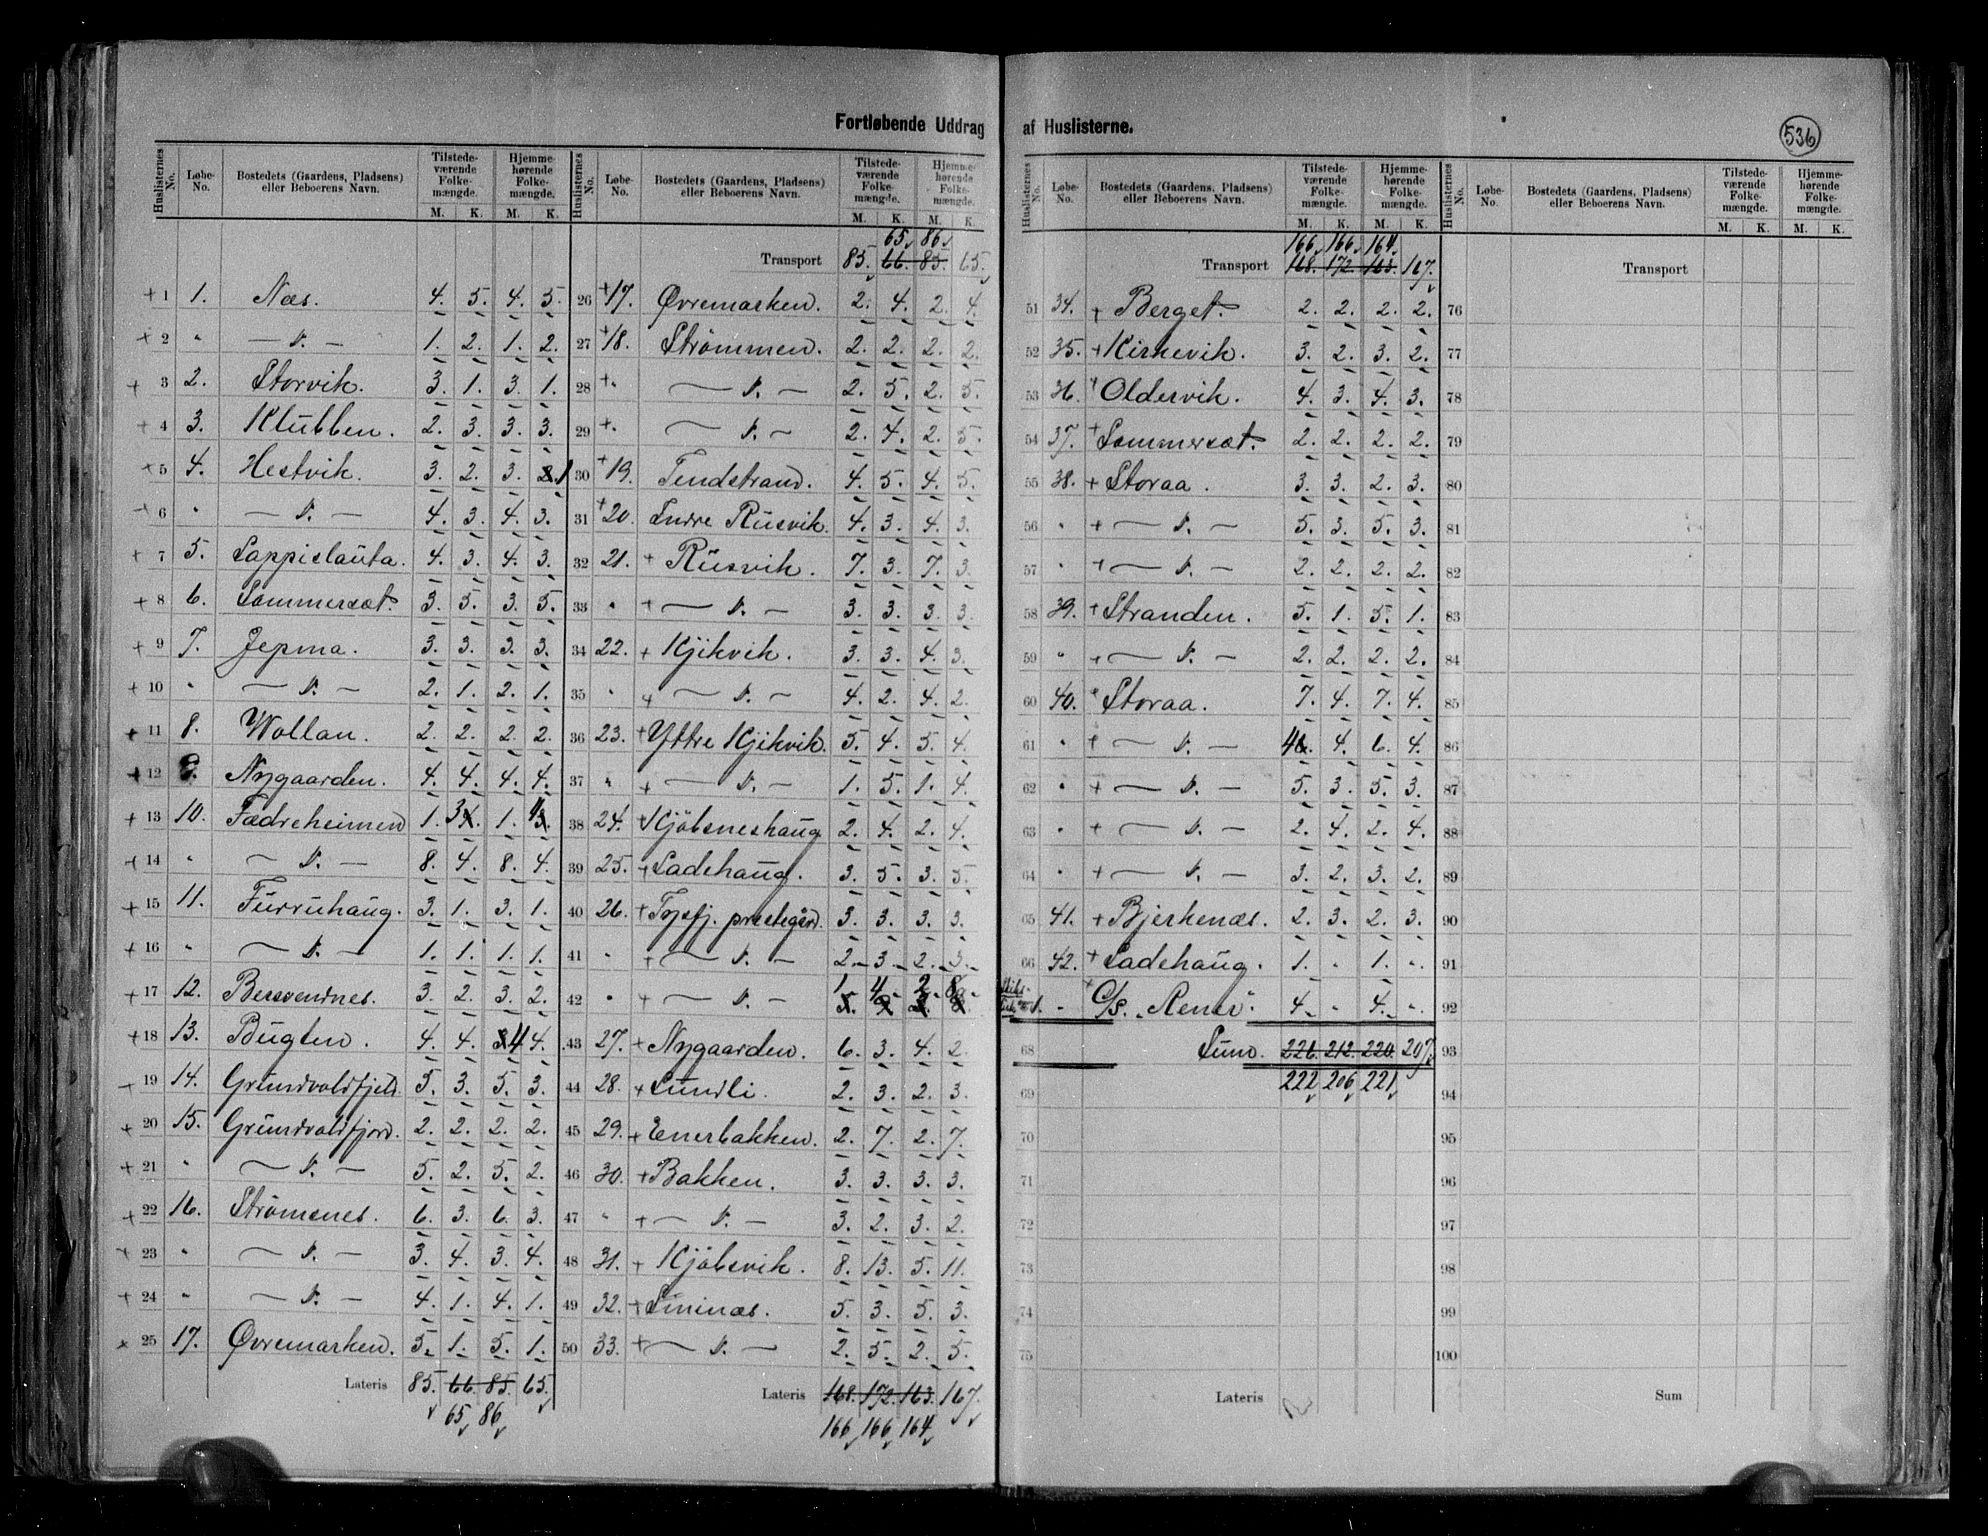 Fortløbende Uddrag af Huslisterne.
536
Huslisternes No. Løbe-No. Bostedets (Gaardens, Pladsens) eller Beboerens Navn. Tilstedeværende Folkemængde. M. K. Hjemmehørende Folkemængde. M. K.
+ 1 1. Næs. 4. 5. 4. 5.
+ 2 " — „ — 1. 2. 1. 2.
+ 3 2. Storvik. 3. 1. 3. 1.
+ 4 3. Klubben. 2. 3. 3. 3.
+ 5 4. Hestvik. 3. 2. 3. 2. 1
+ 6 " — „ — 4. 3. 4. 3.
+ 7 5. Lappislauta. 4. 3. 4. 3.
+ 8 6. Sommersæt. 3. 5. 3. 5.
+ 9 7. Jepma. 3. 3. 3. 3.
+ 10 " — „ — 2. 1. 2. 1.
+ 11 8. Wollan. 2. 2. 2. 2.
+ 12 9. Nygaarden. 4. 4. 4. 4.
+ 13 10. Fædreheimen 1. 3 4. 1. 4 3.
+ 14 " — „ — 8. 4. 8. 4.
+ 15 11. Furruhaug. 3. 1. 3. 1.
+ 16 " — „ — 1. 1. 1. 1.
+ 17 12. Bersvendnes. 3. 2. 3. 2.
+ 18 13. Bugten. 4. 4. 3 4 4.
+ 19 14. Grundvoldfjeld. 5. 3. 5. 3.
+ 20 15. Grundvoldfjord. 2. 2. 2. 2.
+ 21 " — „ — 5. 2. 5. 2.
+ 22 16. Strømsnes. 6. 3. 6. 3.
+ 23 " — „ — 3. 4. 3. 4.
+ 24 " — „ — 4. 1. 4. 1.
+ 25 17. Øvremarken. 5. 1. 5. 1.
Lateris 85. 66. 85. 65.
65 86
Huslisternes No. Løbe-No. Bostedets (Gaardens, Pladsens) eller Beboerens Navn. Tilstedeværende Folkemængde. M. K. Hjemmehørende Folkemængde. M. K.
65 86
Transport 85. 66. 85. 65.
26 +17. Øvremarken. 2. 4. 2. 4.
27 +18. Strømmen. 2. 2. 2. 2.
28 + " — „ — 2. 5. 2. 5.
29 + " — „ — 2. 4. 2. 5.
30 +19. Tendstrand. 4. 5. 4. 5.
31 +20. Indre Rusvik. 4. 3. 4. 3.
32 21. + Rusvik. 7. 3. 7. 3.
33 " + — „ — 3. 3. 3. 3.
34 22. + Kjikvik. 3. 3. 4. 3.
35 " + — „ — 4. 2. 4. 2.
36 23. + Yttre Kjikvik. 5. 4. 5. 4.
37 " + — „ — 1. 5. 1. 4.
38 24. + Kjøbsneshaug 2. 4. 2. 4.
39 25. + Ladehaug. 3. 5. 3. 5.
40 26. + Tysfj. prestegård. 3. 3. 3. 3.
41 " + — „ — 2. 3. 2. 3.
1. 4. 2. 8.
42 " + — „ —
43 27. + Nygaarden. 6. 3. 4. 2.
44 28. + Lundli. 2. 3. 2. 3.
45 29. + Enerbakken. 2. 7. 2. 7.
46 30. + Bakken. 3. 3. 3. 3.
47 " + — „ — 3. 2. 3. 2.
48 31. + Kjøbsvik. 8. 13. 5. 11.
49 32. + Lininæs. 5. 3. 5. 3.
50 33. + — „ — 2. 5. 2. 5.
Lateris 168. 172. 163. 167.
166 166 164
Huslisternes No. Løbe-No. Bostedets (Gaardens, Pladsens) eller Beboerens Navn. Tilstedeværende Folkemængde. M. K. Hjemmehørende Folkemængde. M. K.
166 166 164
Transport 168. 172. 163. 167.
51 34. + Berget. 2. 2. 2. 2.
52 35. + Kirkevik. 3. 2. 3. 2.
53 36. + Oldervik. 4. 3. 4. 3.
54 37. + Sommersæt. 2. 2. 2. 2.
55 38. + Storaa. 3. 3. 2. 3.
56 " + — „ — 5. 3. 5. 3.
57 " + — „ — 2. 2. 2. 2.
58 39. + Stranden. 5. 1. 5. 1.
59 " + — „ — 2. 2. 2. 2.
60 40. + Storaa. 7. 4. 7. 4.
61 " + — „ — 4 6. 4. 6. 4.
62 " + — „ — 5. 3. 5. 3.
63 " + — „ — 2. 4. 2. 4.
64 " + — „ — 3. 2. 3. 2.
65 41. + Bjerkenæs. 2. 3. 2. 3.
66 42. + Ladehaug. 1. " 1. "
1. " + C/S. „Rener". 4. " 4. "
68 Sum. 226. 212. 220. 207.
69 222 206 221
70
71
72
73
74
75
Lateris
Huslisternes No. Løbe-No. Bostedets (Gaardens, Pladsens) eller Beboerens Navn. Tilstedeværende Folkemængde. M. K. Hjemmehørende Folkemængde. M. K.
Transport
76
77
78
79
80
81
82
83
84
85
86
87
88
89
90
91
92
93
94
95
96
97
98
99
100
Sum